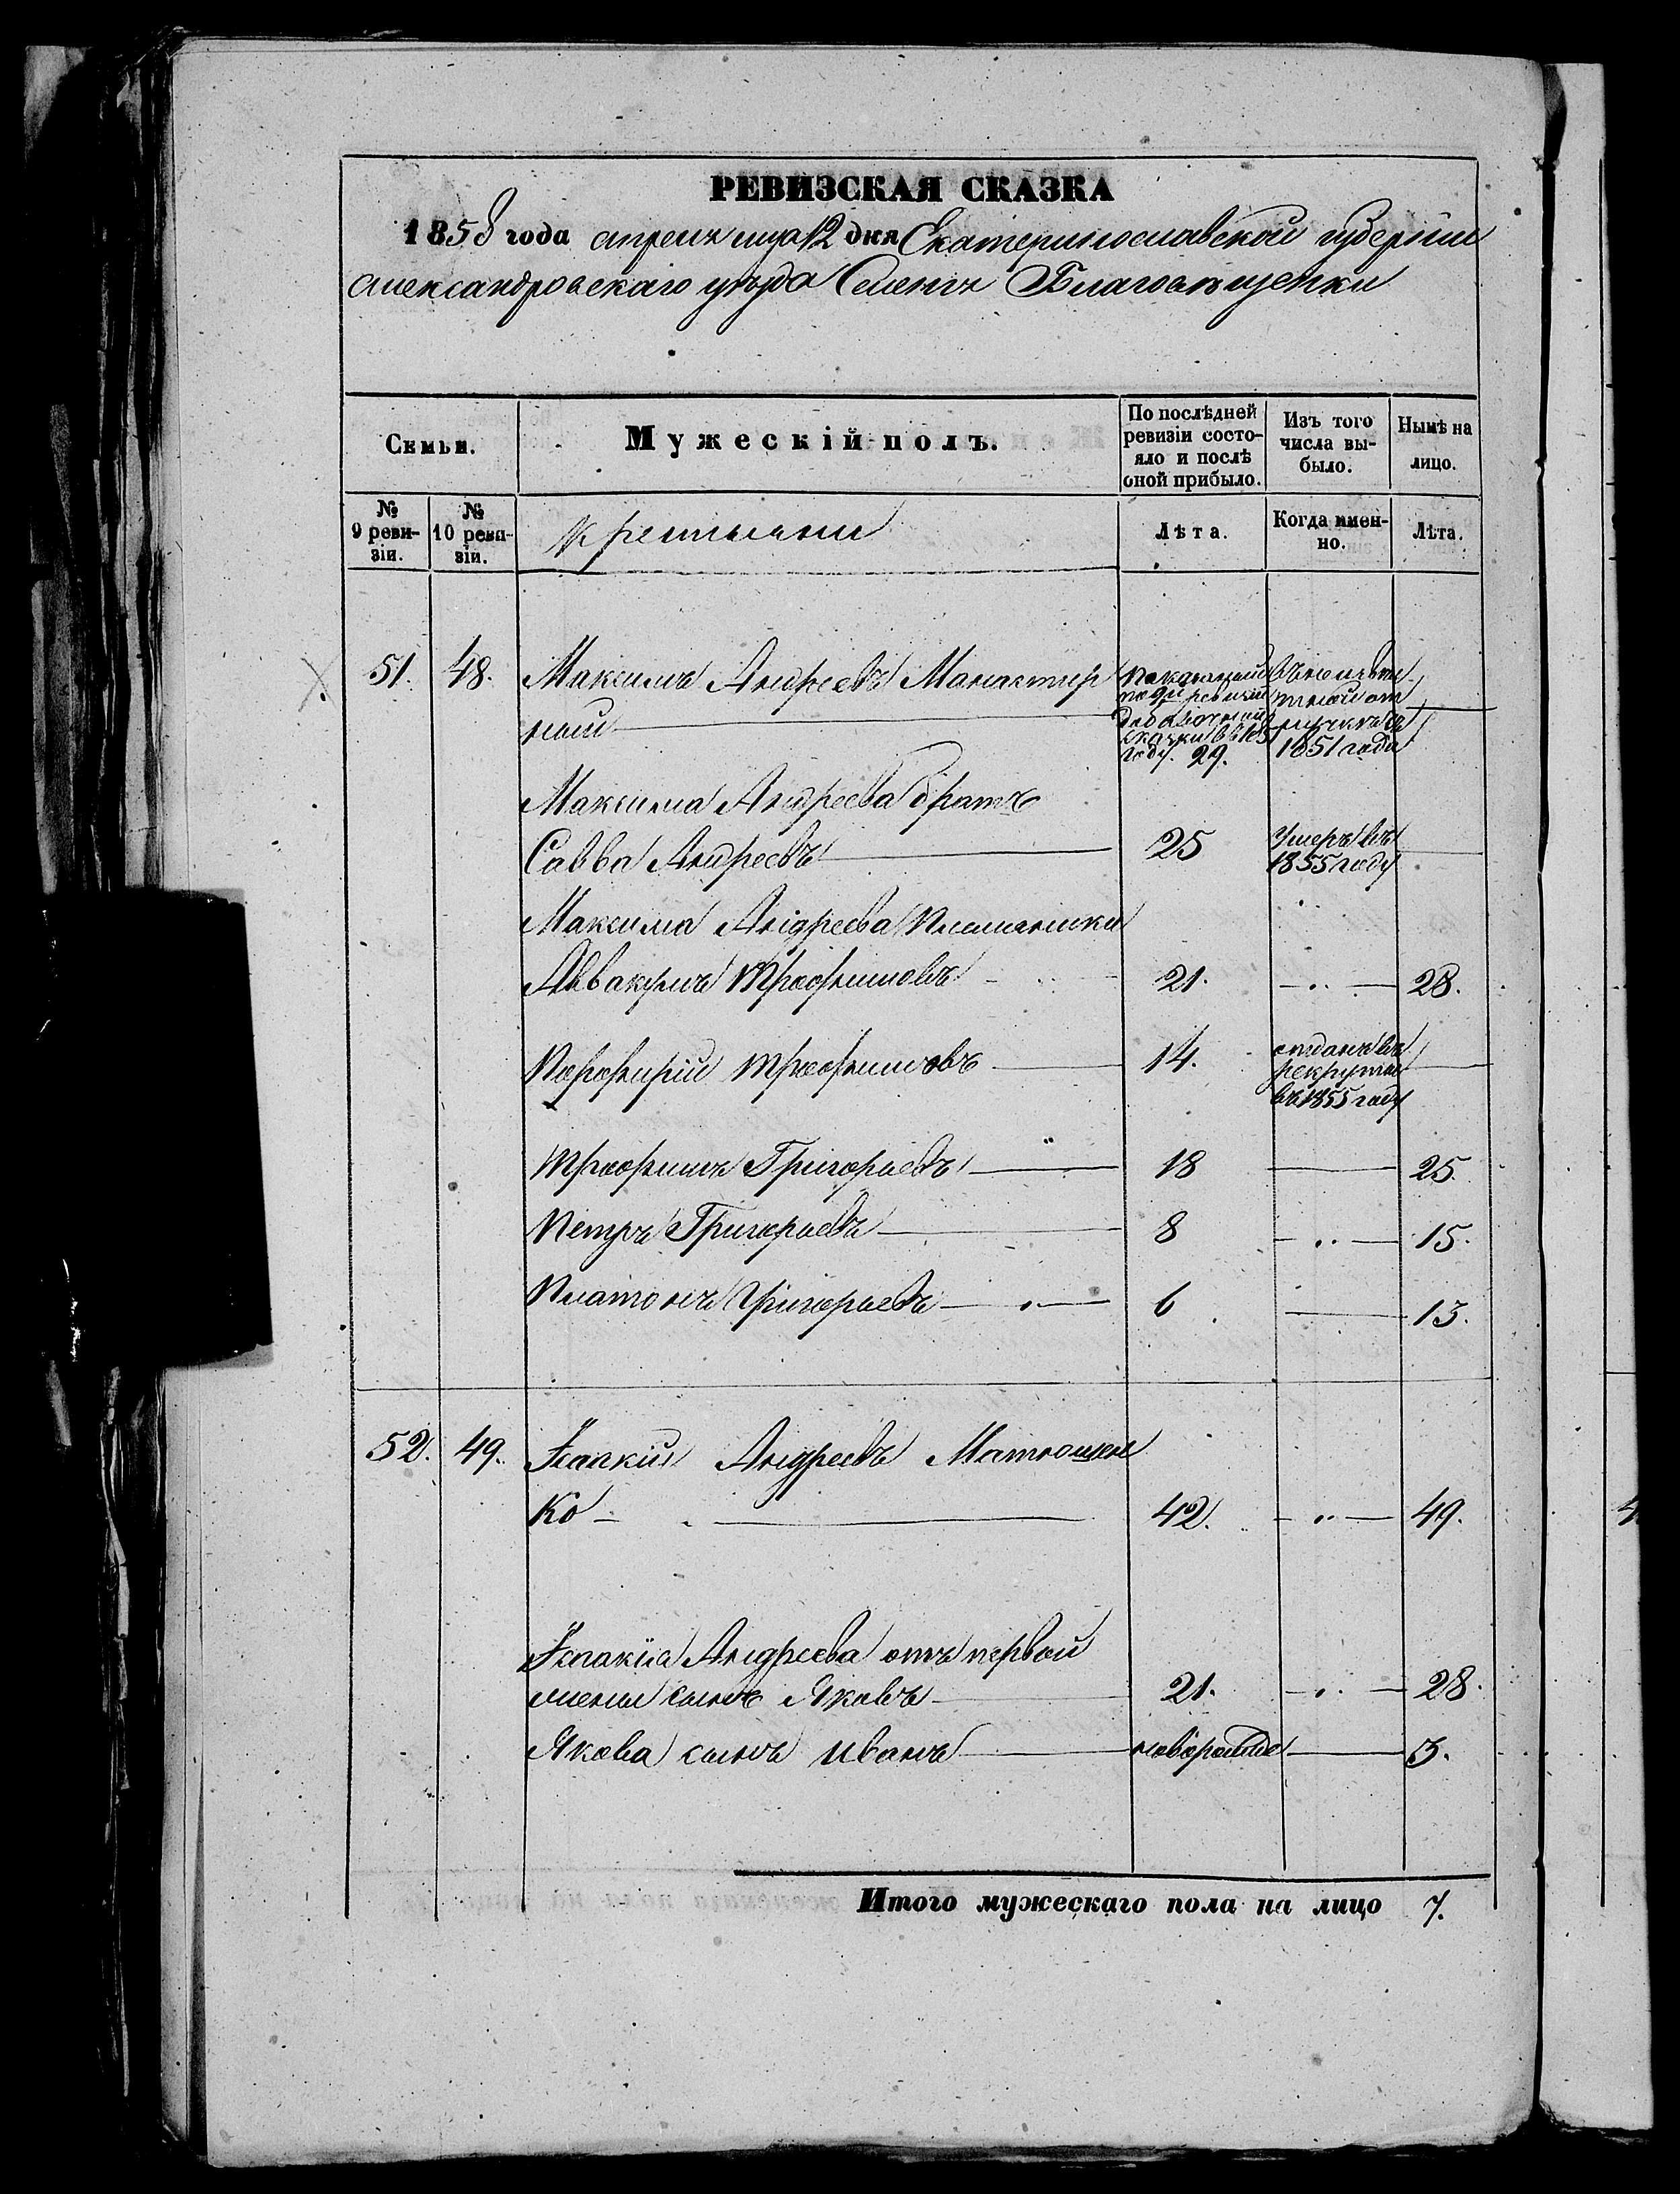 РЕВИЗСКАЯ СКАЗКА
1858 года апреля мца 12 дня Екатеринославской губернии
Александровскаго уезда Селенія Благовещенки
Семьи.
Мужескій полъ.
По послѣдней ревизіи состо-
яло и послѣ
оной прибыло.
Изъ того
числа вы-
было.
Нынѣ на
лицо.
№
9 реви-
зіи.
№
10 реви-
зіи.
Крестьяни
Лѣта.
Когда имен-
но.
Лѣта.
51. 48. Максимъ Андреевъ Манастыр
ный
году. 29.
въ неизвѣ
тной от
лучкѣ съ
1851 года
Максима Андреева братъ
Савва Андреевъ 25 Умеръ въ
1855 году
Максима Андреева Племянники
Аввакумъ Трофимовъ 21. 28.
Порфирій Трофимовъ 14. отданъ въ
рекруты
въ 1855 году
Трофимъ Григорьевъ 18 25.
Петръ Григорьевъ 8 15.
Платонъ Григорьевъ 6 13.
52. 49. Іоанкій Андреевъ Матюшен
ко 42. 49.
Андреева отъ первой
жены сынъ Яковъ 21. 28.
Якова сынъ Иванъ новорожде 3.
Итого мужескаго пола на лицо 7.